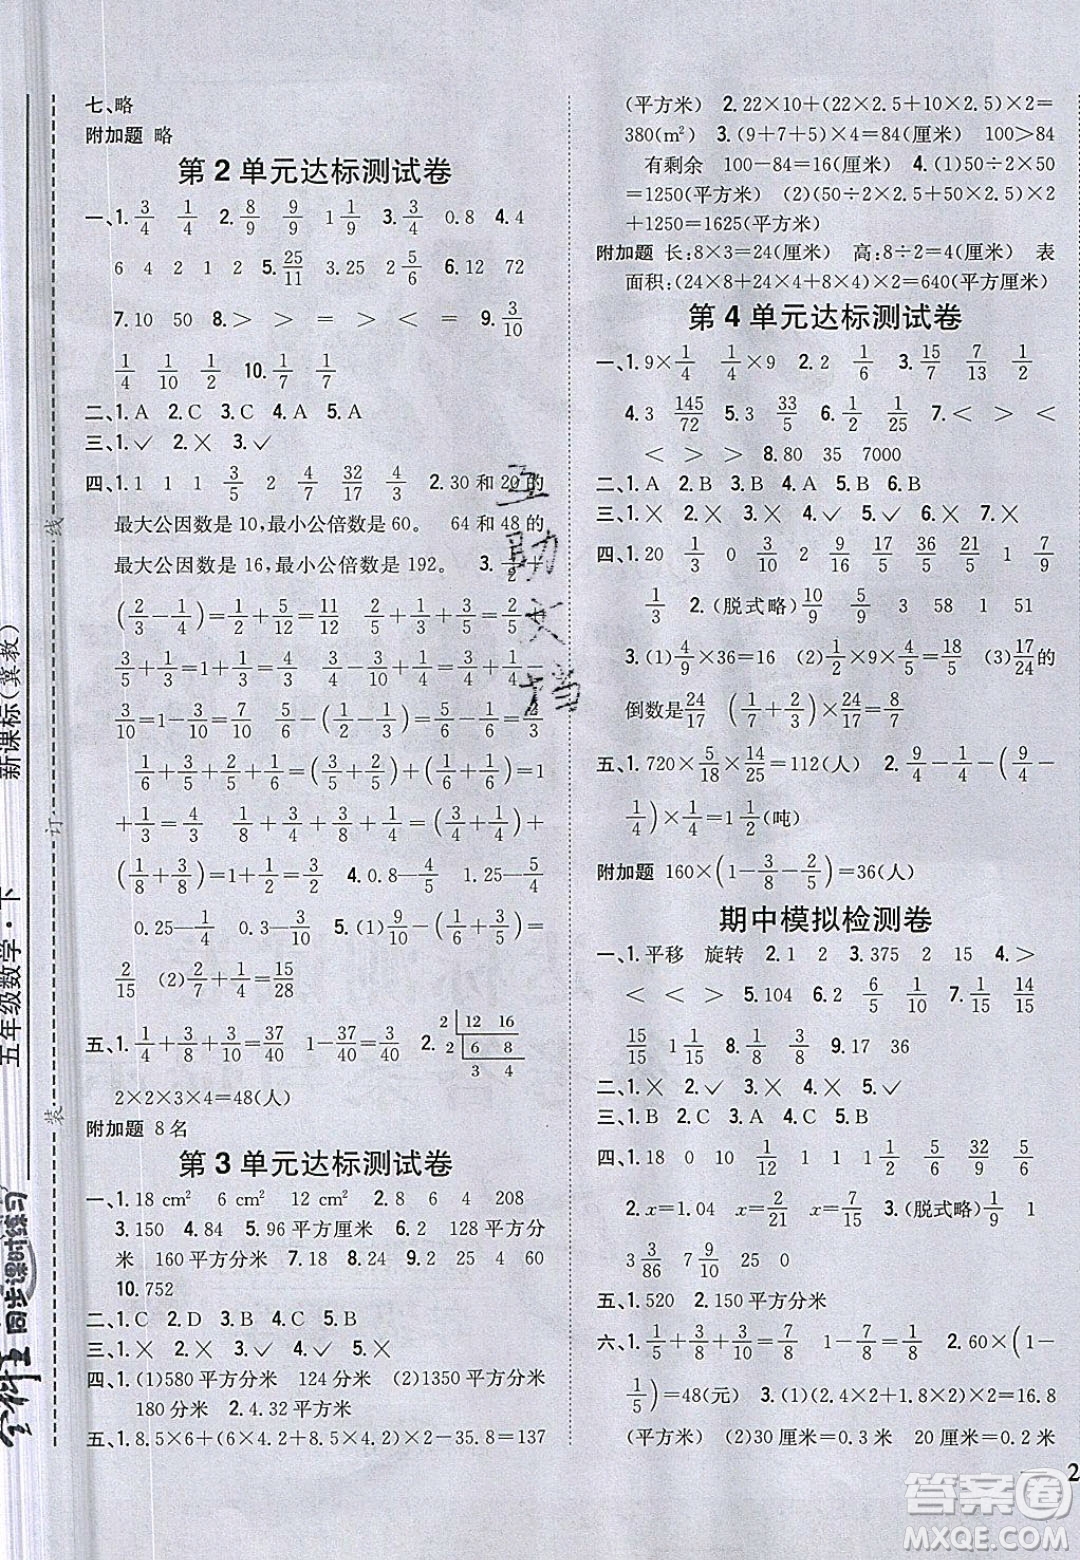 七、略
附加题 略
第2单元达标测试卷
一、1. 3/4 1/4 2. 8/9 9/9 1 1/9 3. 3/4 0.8 4. 4
6 4 2 5. 25/11 3.25 2 5/6 6. 12 72
7. 10 50 8. > > = > < = 9. 3/10
1/4 1/10 1/2 10. 1/7 1/7
二、1. A 2. C 3. C 4. A 5. A
三、1. ✓ 2. × 3. ✓
四、1. 1 1 1 3/5 2 2/7 32/17 4/4 2. 30 和 20 的
最大公因数是 10，最小公倍数是 60。 64 和 48 的
最大公因数是 16，最小公倍数是 192。 3. 1/2+
(2/3-1/4)=1/2+5/12=11/12
3/5+1/3+
3/10+4/10=7/10
1/6+3/5+2/6+2/5=(3/5+2/5)+(1/6+2/6)=1
+1/3=4/3 1/8+3/4+3/8+1/4=(3/4+1/4)+
(1/8+3/8)=1+1/2=3/2 4. 0.8-4/5 1.25-5/4
0.25-1/4 0.3-3/10 5. (1) 9/10-(1/6+3/5)=
2/15 (2) 1/8+1/4+1/4=15/28
五、1. 1/4+3/10+3/8=37/40 1-37/40=3/40 2. 2 12 16
2 6 8
3 4
2×2×3×4=48(人)
附加题 8 名
第3单元达标测试卷
一、1. 18 cm² 6 cm² 12 cm² 2. 8 6 4 208
3. 150 4. 84 5. 96 平方厘米 6. 2 128 平方分
米 160 平方分米 7. 24 8. 24 9. 2 25 4 60
10. 752
二、1. C 2. D 3. C 4. A 5. B
三、1. × 2. × 3. ✓ 4. ✓ 5. ×
四、1. (1)580 平方分米 124 分米 (2)1350 平方分米
180 分米 2. 4.32 平方米
五、1. 8.5×6+(6×4.2+8.5×4.2)×2-35.8=137
(平方米) 2. 22×10+(22×2.5+10×2.5)×2=
380(m²) 3. (9+7+5)×4=84(厘米) 100>84
有剩余 100-84=16(厘米) 4. (1)50÷2×50
=1250(平方米) (2)(50÷2×5+50×5)×2
+1250=1625(平方米)
附加题 长：8×3=24(厘米) 高：8÷2=4(厘米) 表
面积：(24×8+24×4+8×4)×2=640(平方厘米)
第4单元达标测试卷
一、1. 9×1/4 1/4×9 2. 2 1/6 3. 15/7 7/13 1/2
4. 3 145/72 5. 3 33/5 6. 1/2 1/2 7. < > <
< > > 8. 80 35 7000
二、1. A 2. B 3. A 4. A 5. B 6. B
三、1. × 2. × 3. × 4. ✓ 5. ✓ 6. ✓ 7. ×
四、1. 20 1/4 0 3/10 2/9 5/17 36/5 21/5
1/3 2. (脱式略) 10/9 5/9 3 58 1 51
3. (1) 4/9×36=16 (2) 1/2×9×5/27=5/6 (3) 17/24的
倒数是24/17 (1/7+2/3)×24/17=8/7
五、1. 720×5/18×14/25=112(人) 2. 9/4-1/4-(9/4-
1/4)×1/4=1 1/2(吨)
附加题 160×(1-3/8-2/5)=36(人)
期中模拟检测卷
一、1. 平移 旋转 2. 1 2 3. 375 2 15 4. >
< < > > 5. 104 6. 2 6/5 1/10 7. 9/15 14/15
15/15 13/15 8. 1/8 3/8 9. 17 36
二、1. × 2. ✓ 3. × 4. ✓ 5. ✓
三、1. B 2. C 3. A 4. B 5. B
四、1. 18 0 10 1/12 1 1 1/6 5/13
2. x=1.04 x=2/21 x=7/15 3. (脱式略) 1/9 1
3 3/86 7/9 25 0
五、1. 520 2. 150 平方分米
六、1. 1/4+3/8+2/8=7/8 1-7/8=1/8 2. 60×(1-
1/5)=48(元) 3. (1)(2.4×2+1.8×2)×2=16.8
(平方米) (2)30 厘米=0.3 米 20 厘米=0.2 米
五年级数学·下
新课标(冀教)
装
订
线
全科王 同步课时练习
互助文档
2
答案圈
MXQE.COM